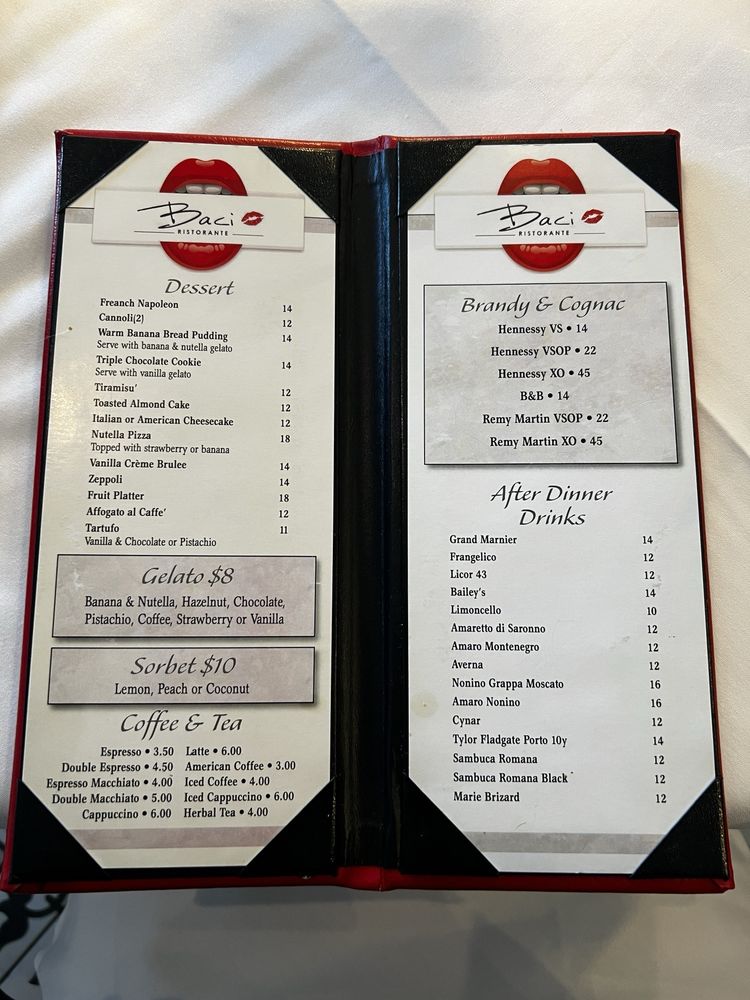 Baci
RISTORANTE
Dessert
Freanch Napoleon 14
Cannoli(2) 12
Warm Banana Bread Pudding 14
Serve with banana & nutella gelato
Triple Chocolate Cookie 14
Serve with vanilla gelato
Tiramisu' 12
Toasted Almond Cake 12
Italian or American Cheesecake 12
Nutella Pizza 18
Topped with strawberry or banana
Vanilla Crème Brulee 14
Zeppoli 14
Fruit Platter 18
Affogato al Caffe' 12
Tartufo 11
Vanilla & Chocolate or Pistachio
Gelato $8
Banana & Nutella, Hazelnut, Chocolate,
Pistachio, Coffee, Strawberry or Vanilla
Sorbet $10
Lemon, Peach or Coconut
Coffee & Tea
Espresso • 3.50 Latte • 6.00
Double Espresso • 4.50 American Coffee • 3.00
Espresso Macchiato • 4.00 Iced Coffee • 4.00
Double Macchiato • 5.00 Iced Cappuccino • 6.00
Cappuccino • 6.00 Herbal Tea • 4.00
Baci
RISTORANTE
Brandy & Cognac
Hennessy VS • 14
Hennessy VSOP • 22
Hennessy XO • 45
B&B • 14
Remy Martin VSOP • 22
Remy Martin XO • 45
After Dinner
Drinks
Grand Marnier 14
Frangelico 12
Licor 43 12
Bailey's 14
Limoncello 10
Amaretto di Saronno 12
Amaro Montenegro 12
Averna 12
Nonino Grappa Moscato 16
Amaro Nonino 16
Cynar 12
Tylor Fladgate Porto 10y 14
Sambuca Romana 12
Sambuca Romana Black 12
Marie Brizard 12